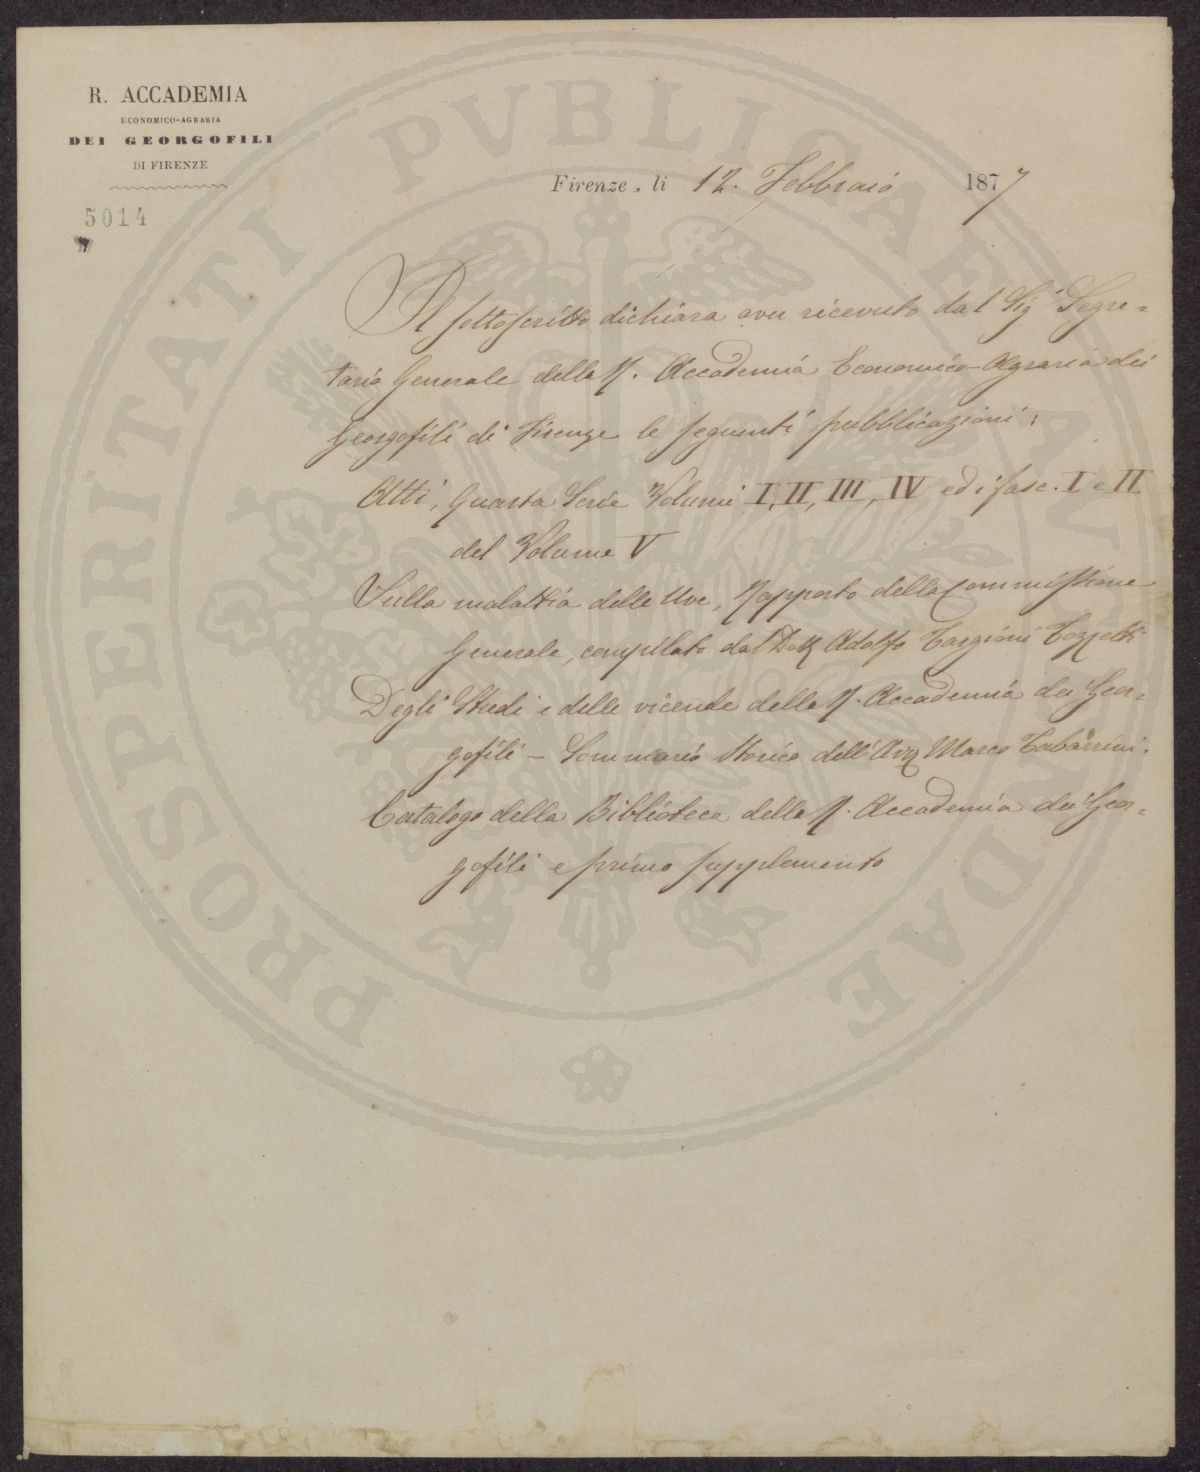 R. ACCADEMIA
ECONOMICO-AGRARIA
DEI GEORGOFILI
DI FIRENZE
5014
Firenze, li 12. Febbraio 1877
Il sottoscritto dichiara aver ricevuto dal Sig. Segre=
tario Generale della R. Accademia Economico-Agraria dei
Georgofili di Firenze le seguenti pubblicazioni:
Atti, Quarta Serie Volumi I, II, III, IV ed i fasc. I e II
del Volume V
Sulla malattia delle Uve, Rapporto della Commissione
Generale, compilato dal Dott. Adolfo Targioni Tozzetti
Degli Studi e delle vicende della R. Accademia dei Geor=
gofili - Sommario Storico dell'Avv. Marco Tabarrini.
Catalogo della Biblioteca della R. Accademia dei Geor=
gofili e primo supplemento
PROSPERITATI PVBLICAE AVGENDAE